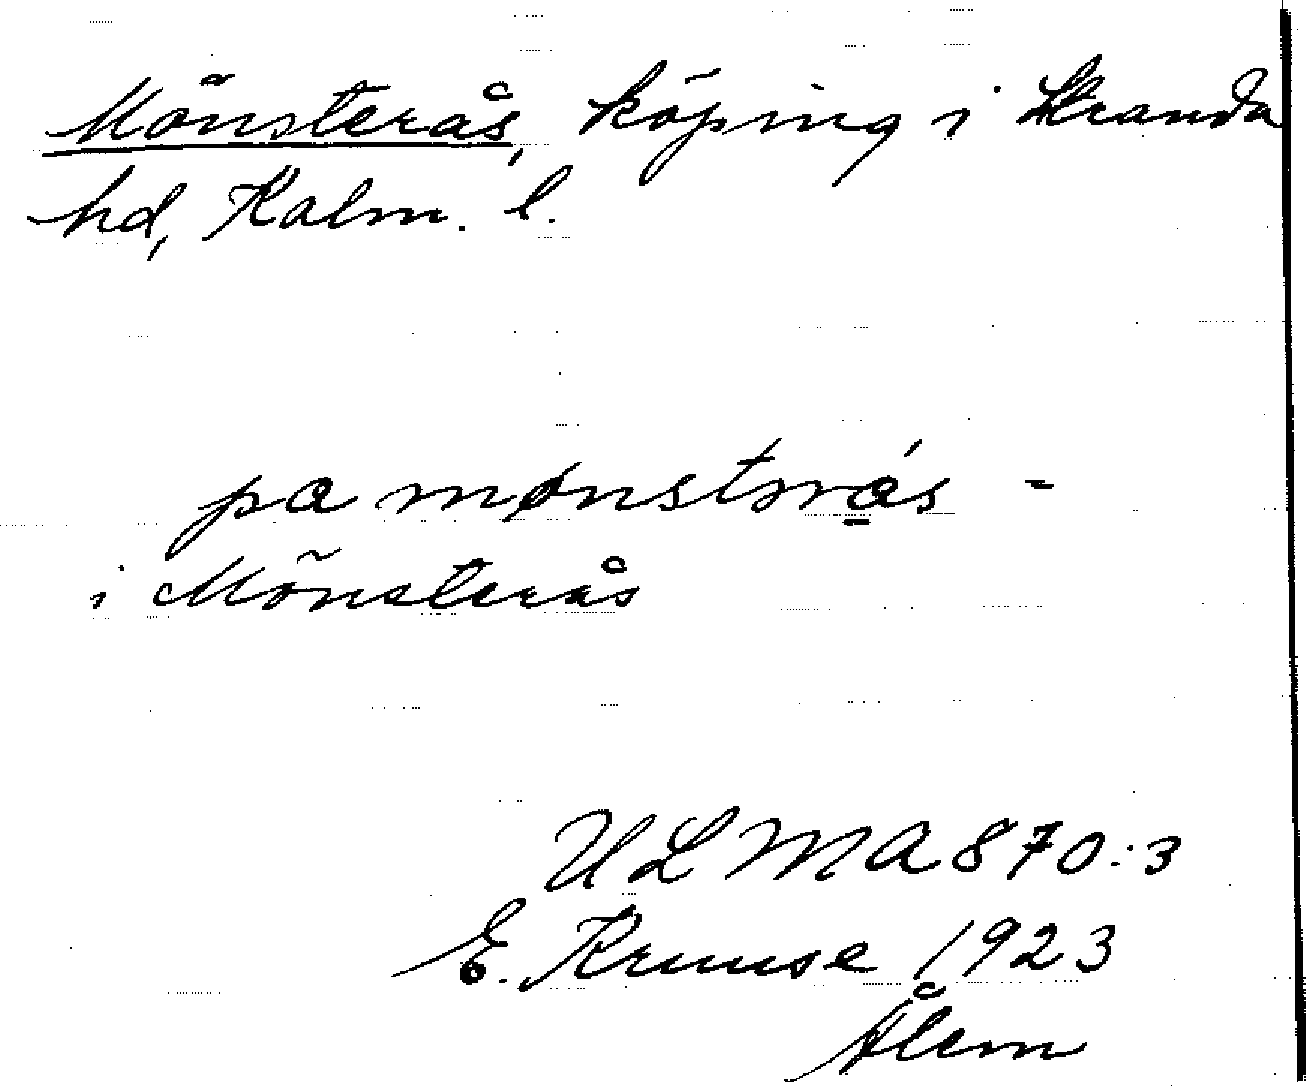 Mönsterås, köping i Stranda
hd, Kalm. l.
pa mønstrås -
i Mönsterås
ULMA 870:3
E. Kruuse 1923
Ålem